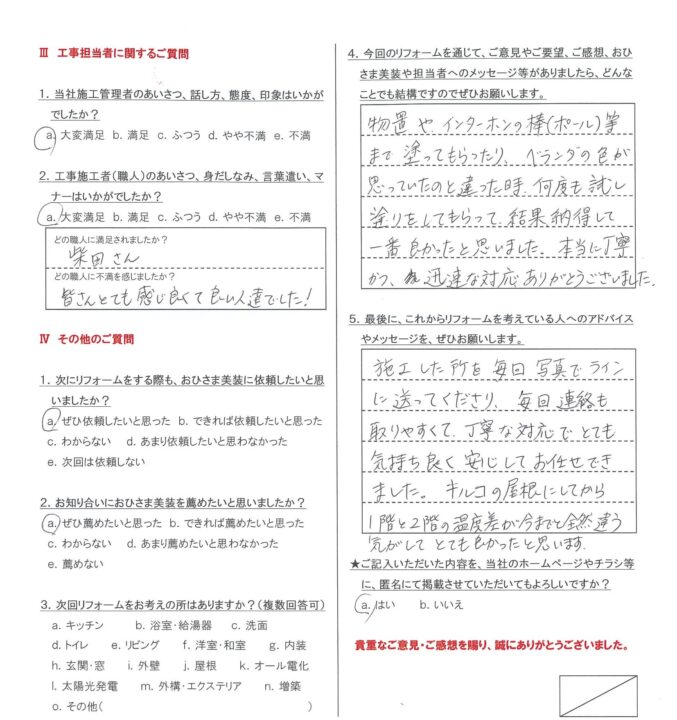 Ⅲ 工事担当者に関するご質問
1. 当社施工管理者のあいさつ、話し方、態度、印象はいかが
でしたか?
a. 大変満足 b. 満足 c. ふつう d. やや不満 e. 不満
2. 工事施工者(職人)のあいさつ、身だしなみ、言葉遣い、マ
ナーはいかがでしたか?
a. 大変満足 b. 満足 c. ふつう d. やや不満 e. 不満
どの職人に満足されましたか?
柴田さん
どの職人に不満を感じましたか?
皆さんとても感じ良くて良い人達でした!
Ⅳ その他のご質問
1. 次にリフォームをする際も、おひさま美装に依頼したいと思
いましたか?
a. ぜひ依頼したいと思った b. できれば依頼したいと思った
c. わからない d. あまり依頼したいと思わなかった
e. 次回は依頼しない
2. お知り合いにおひさま美装を薦めたいと思いましたか?
a. ぜひ薦めたいと思った b. できれば薦めたいと思った
c. わからない d. あまり薦めたいと思わなかった
e. 薦めない
3. 次回リフォームをお考えの所はありますか?(複数回答可)
a. キッチン b. 浴室・給湯器 c. 洗面
d. トイレ e. リビング f. 洋室・和室 g. 内装
h. 玄関・窓 i. 外壁 j. 屋根 k. オール電化
l. 太陽光発電 m. 外構・エクステリア n. 増築
o. その他( )
4. 今回のリフォームを通じて、ご意見やご要望、ご感想、おひ
さま美装や担当者へのメッセージ等がありましたら、どんな
ことでも結構ですのでぜひお願いします。
物置やインターホンの棒(ポール)等
まで塗ってもらったり、ベランダの色が
思っていたのと違った時、何度も試し
塗りをしてもらって、結果納得して
一番良かったと思いました。本当に丁寧
かつ、迅速な対応ありがとうございました。
5. 最後に、これからリフォームを考えている人へのアドバイス
やメッセージを、ぜひお願いします。
施工した所を毎日写真でライン
に送ってくださり、毎回連絡も
取りやすくて、丁寧な対応でとても
気持ち良く安心してお任せでき
ました。キルコの屋根にしてから
1階と2階の温度差が今までと全然違う
気がしてとても良かったと思います。
★ご記入いただいた内容を、当社のホームページやチラシ等
に、匿名にて掲載させていただいてもよろしいですか?
a. はい b. いいえ
貴重なご意見・ご感想を賜り、誠にありがとうございました。